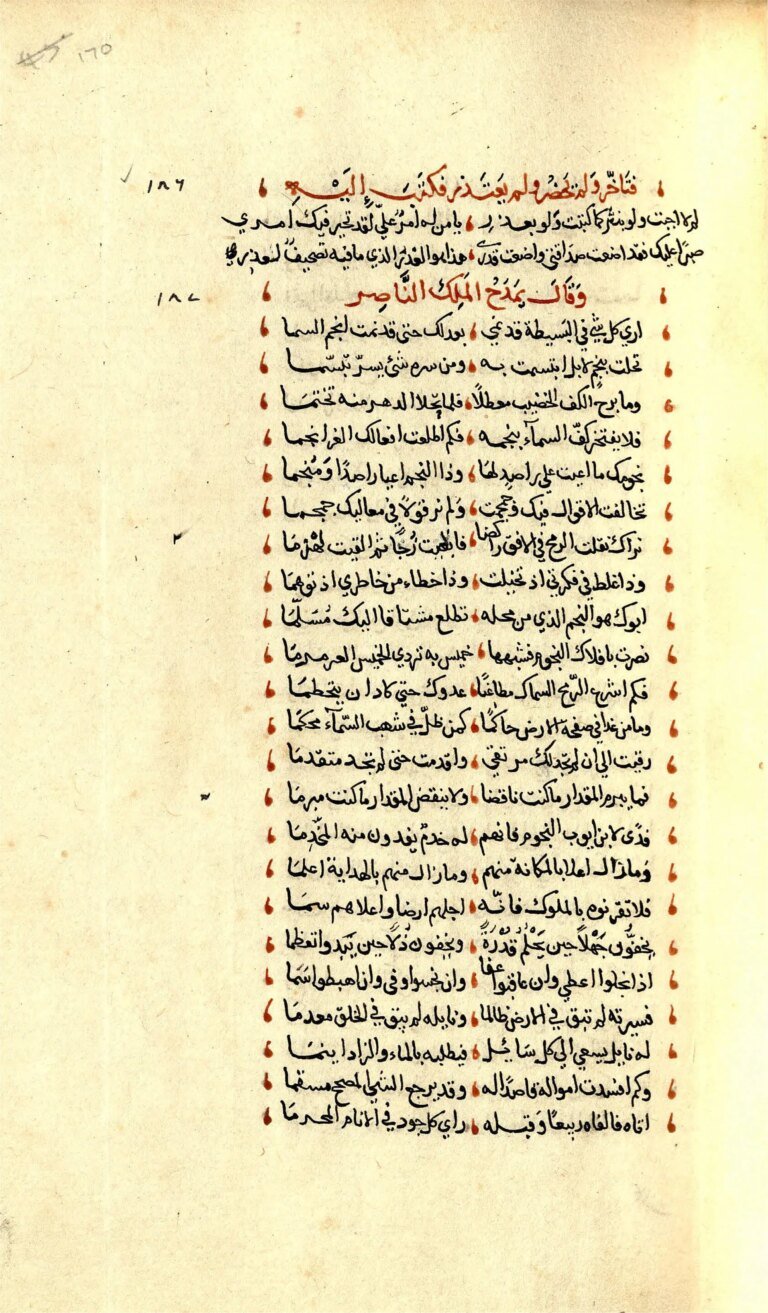 ١٦٥
١٨٦ فتاخّر ولم يحضر ولم يعتذر فكتب إليه
لم لا اجبت ولو بنثر كما كتبت ولو بعذر يا من له امر عليّ لقد تحير فيك امري
صبرا عليك نقد اضعت صداقتي واضعت قدري هذا هو الغدر الذي ما فيه تصحيف لعذر
١٨٧ وقال يمدح الملك الناصر
اري كل شي في البسيطة قد نمي بعدلك حتى قد نمت انجم السما
تحلت بنجم لا بل ابتسمت به ومن سره شئ يسرّ تبسّما
وما برح الكف الخضيب معطلاً فلما تحلا الدهر منه تختما
فلا يفتخر كفّ السمآء بنجمه فكم اطلعت افعالك الغر انجما
نجومك ما اعيت علي راصد لها وذا النجم اعيا راصدًا ومنجما
تخالفت الاقوال فيك وجمجمت ولم نر قولاً في معاليك جمجما
نراك نقلت الرمح في الافق راكضا فابقيت زُجًّا ثم القيت لهزما
وذا غلط في فكرتي اذ تخيلت وذا خطاء من خاطري اذ توهما
ابوك هو النجم الذي من محله تطلع مشتاقا اليك مُسَلِّما
نصرت بافلاك النجوم فشهبها خميس به تردي الخميس العرمرما
فكم اشرع الرّمح السماك مطاعنًا عدوك حتي كاد ان يتحطما
وما من غدا في صفحة الارض حاكمًا كمن ظلّ في شهب السّمآء محكما
رقيت الي ان لم تجد لك مرتقي واقدمت حتى لم تجد متقدما
فما يبرم المقدار ما كنت ناقضا ولا ينقض المقدار ما كنت مبرما
فدًى لابن ايوب النجوم فانهم له خدمٌ يفدون منه المخدّما
وما زال اعلا بالمكانة منهم وما زال منهم بالهداية اعلما
فلا تقرنوه بالملوك فانّه اجلهم ارضا واعلاهم سما
يخفّون جهلاً حين يحلم قدرة ويخفون ذلاًّ حين يبدو تعظما
اذا بخلوا اعطي وان عاقبوا عفا وان بخسوا وفي وان هبطوا سما
فسيرته لم تبق في الارض ظالما ونايله لم يبق في الخلق معدما
له نايل يسعي الي كل سايل فيطلبه بالماء والزاد اينما
وكم افسدت امواله قاصدًا له وقد يرجع الشي المصحح مسقما
اتاه فالفاه ربيعًا وقبله راي كل جود في الانام المحرما